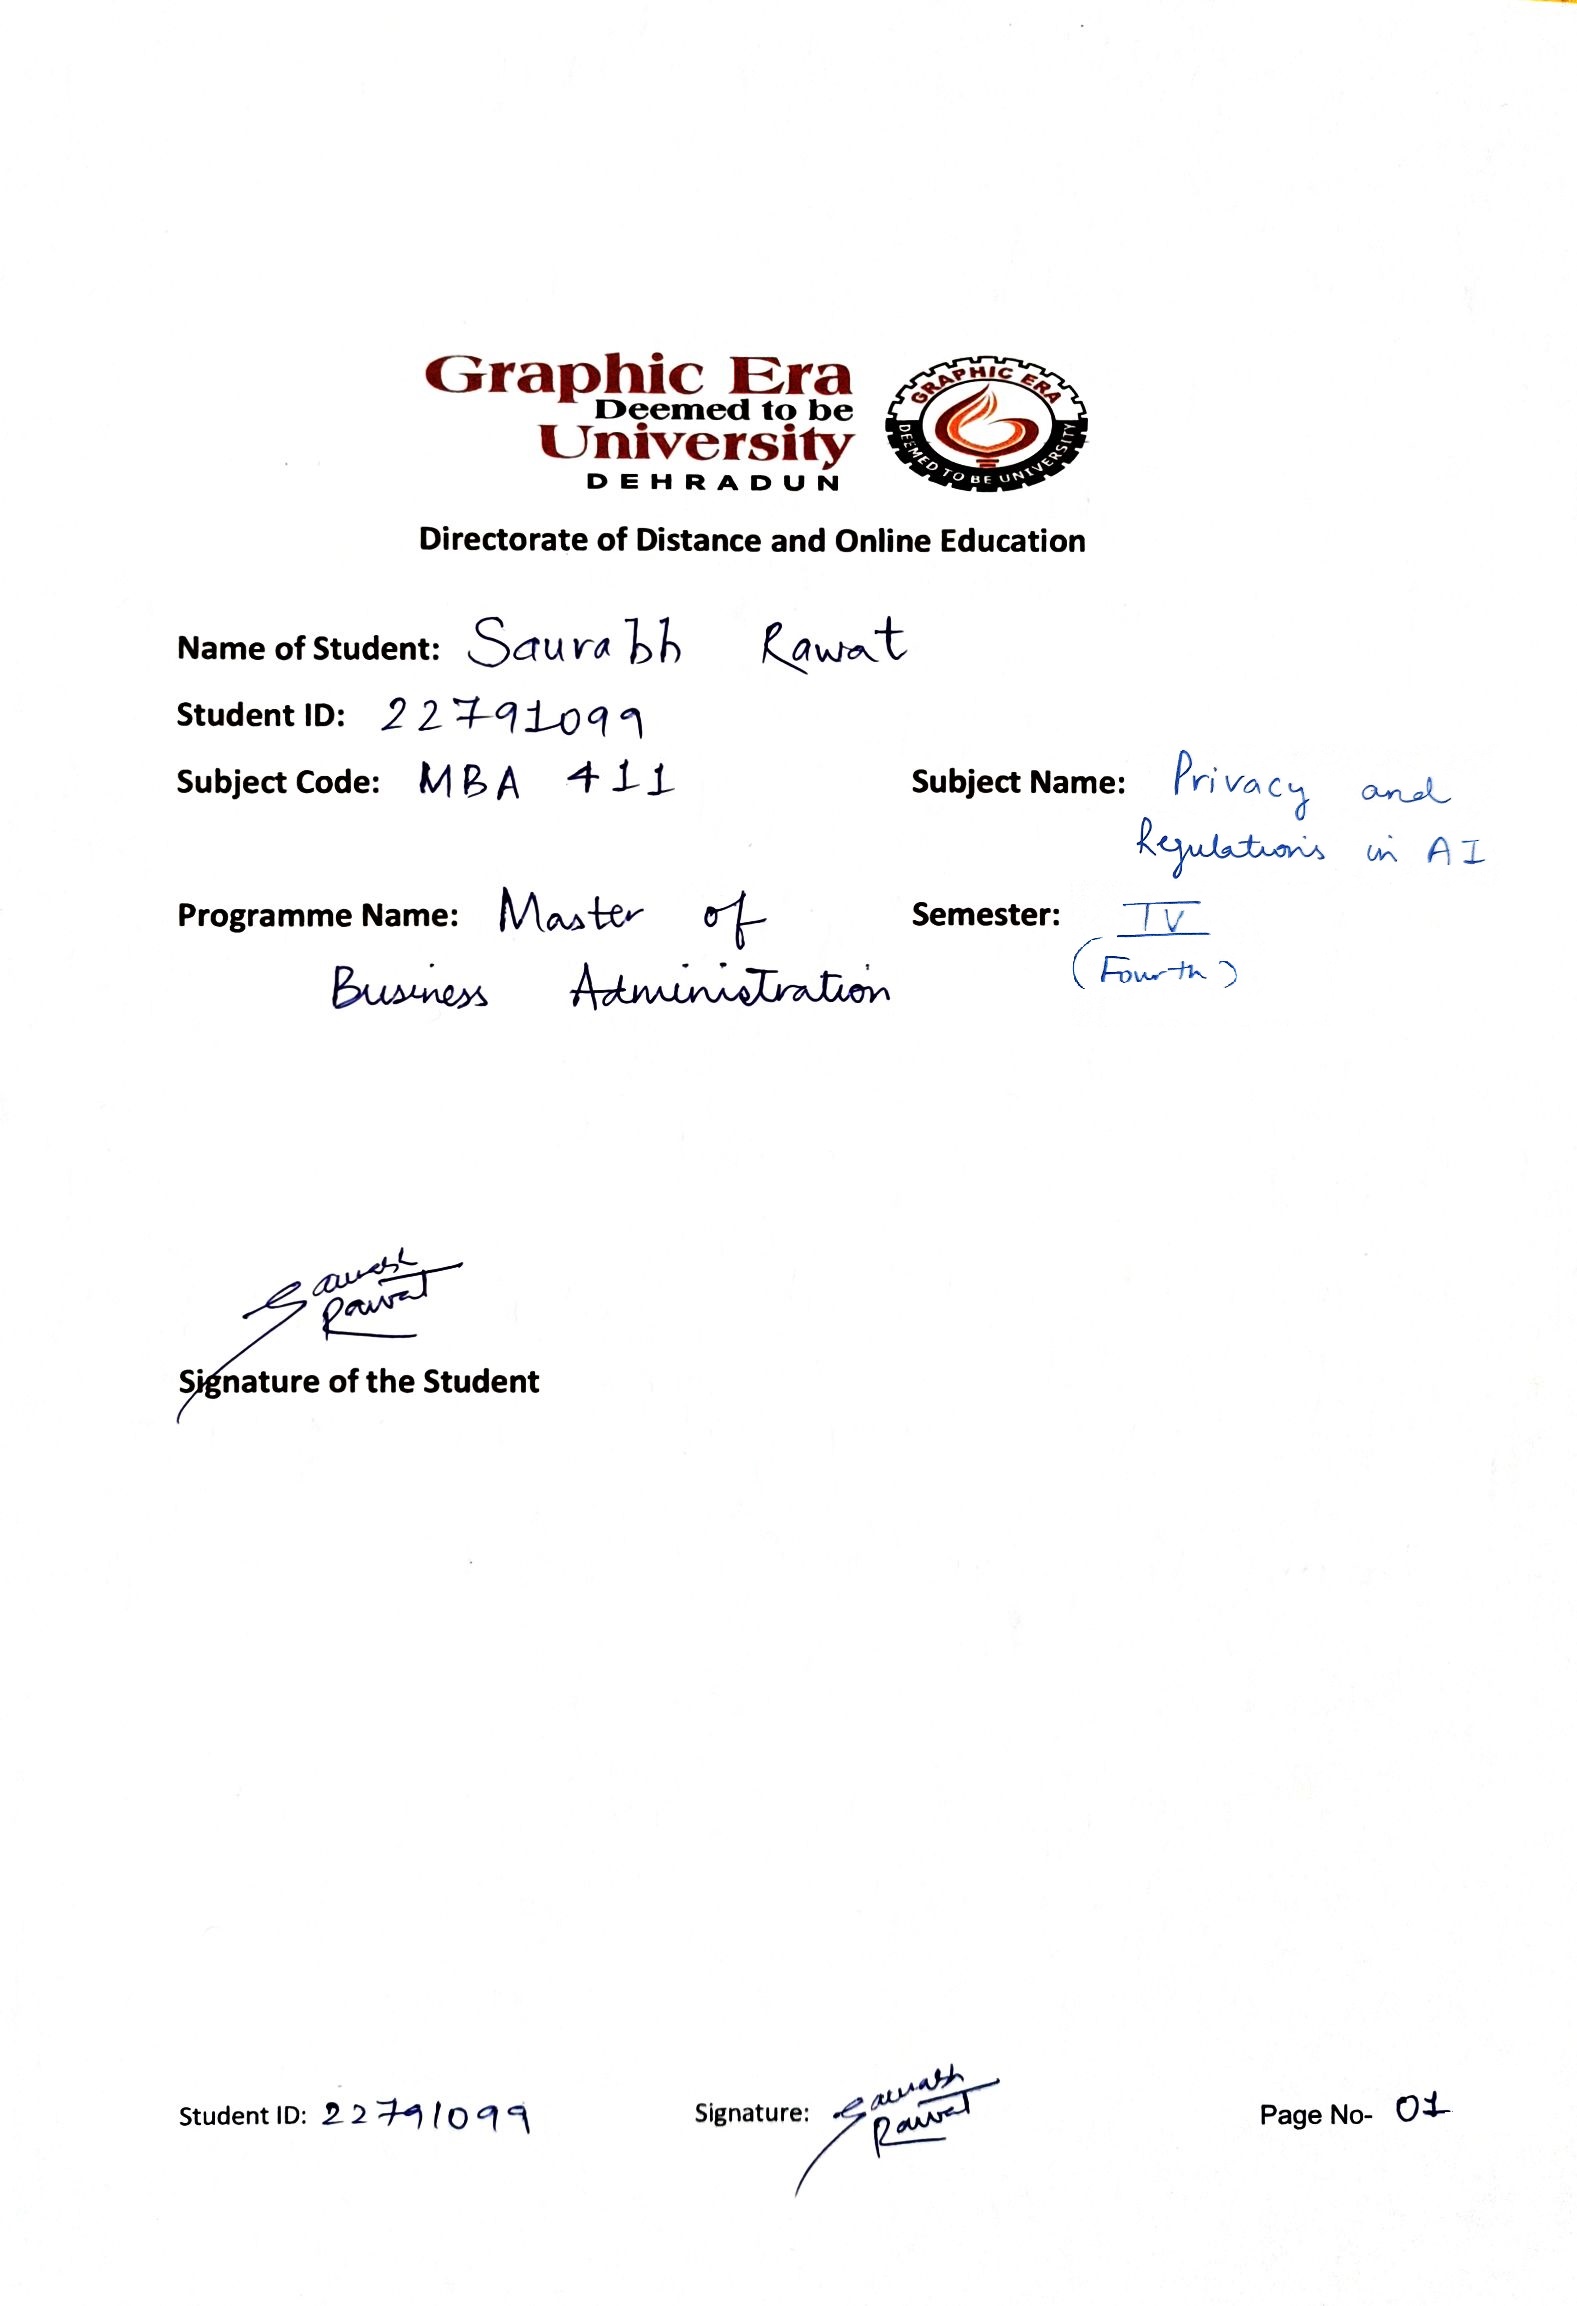 Graphic Era
Deemed to be
University
DEHRADUN
GRAPHIC ERA
DEEMED TO BE UNIVERSITY
Directorate of Distance and Online Education
Name of Student: Saurabh Rawat
Student ID: 22791099
Subject Code: MBA 411 Subject Name: Privacy and
Regulations in AI
Programme Name: Master of Semester: IV
Business Administration (Fourth)
Saurabh
Rawat
Signature of the Student
Student ID: 22791099 Signature: Saurabh Rawat Page No- 01